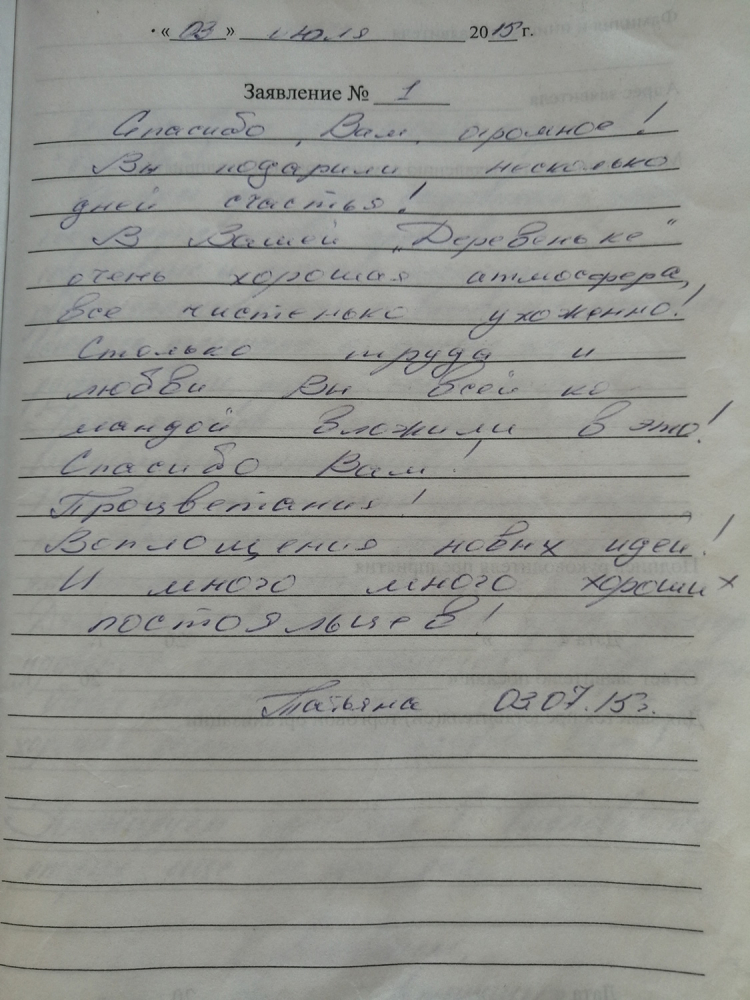 « 03 » июля 2015 г.
Заявление № 1
Спасибо Вам огромное!
Вы подарили несколько
дней счастья!
В Вашей „Деревеньке“
очень хорошая атмосфера,
все чистенько ухоженно!
Столько труда и
любви Вы всей ко
мандой вложили в это!
Спасибо Вам!
Процветания!
Воплощения новых идей!
И много много хороших
постояльцев!
Татьяна 03.07.15г.